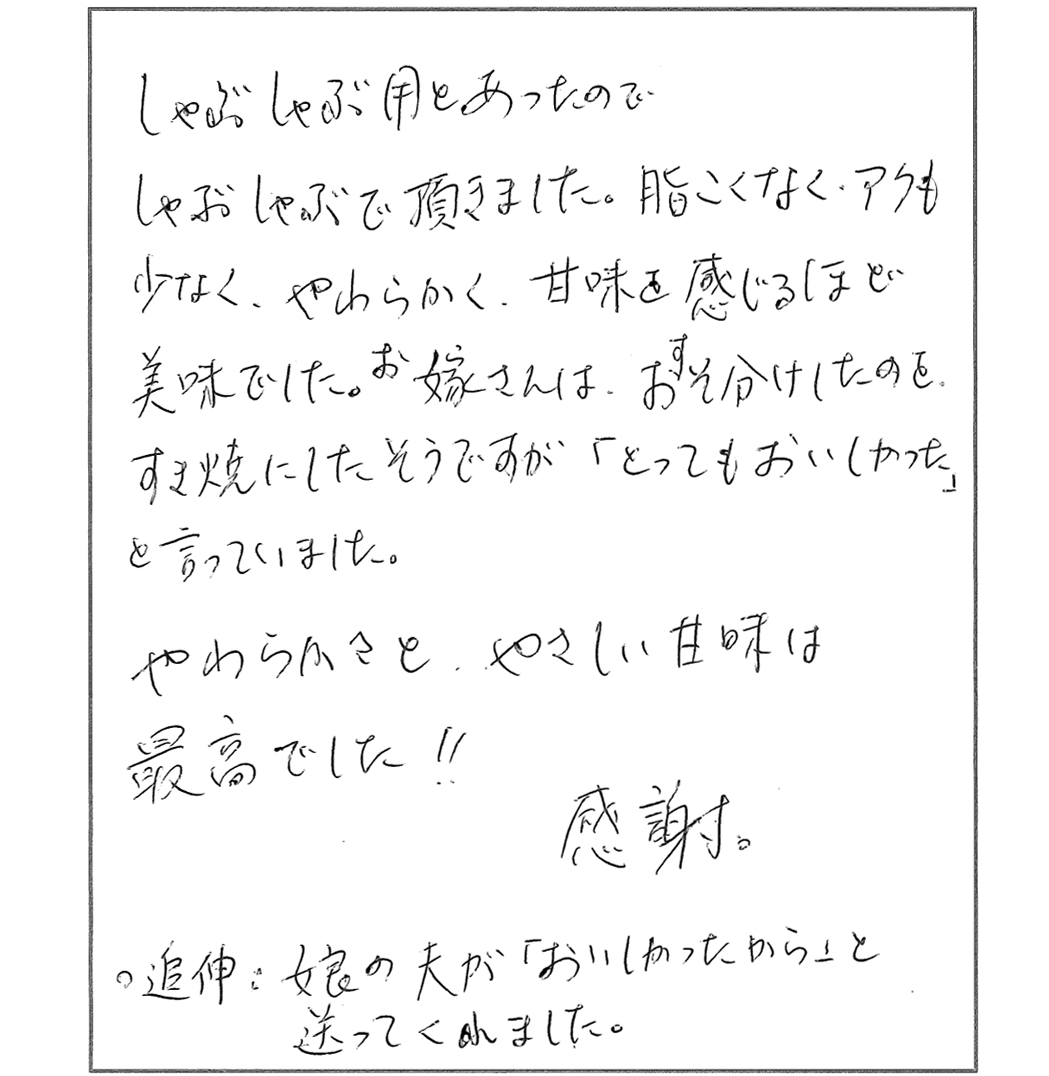 しゃぶしゃぶ用とあったので
しゃぶしゃぶで頂きました。脂こくなく、アクも
少なく、やわらかく、甘味を感じるほど
美味でした。お嫁さんは、おすそ分けしたのを、
すき焼にしたそうですが「とってもおいしかった」
と言っていました。
やわらかさと、やさしい甘味は
最高でした!!
感謝。
○追伸:娘の夫が「おいしかったから」と
送ってくれました。